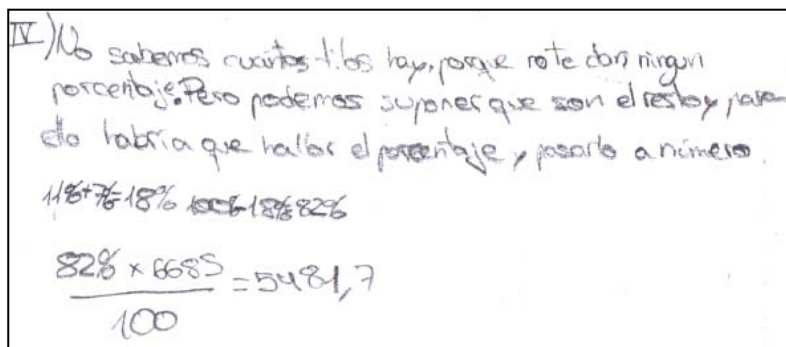 IV) No sabemos cuántos tilos hay, porque no te dan ningun
porcentaje. Pero podemos suponer que son el resto y para
ello habría que hallar el porcentaje y pasarlo a número.
11%+7%=18% 100%-18%=82%
82% x 6685
/100 = 5481,7